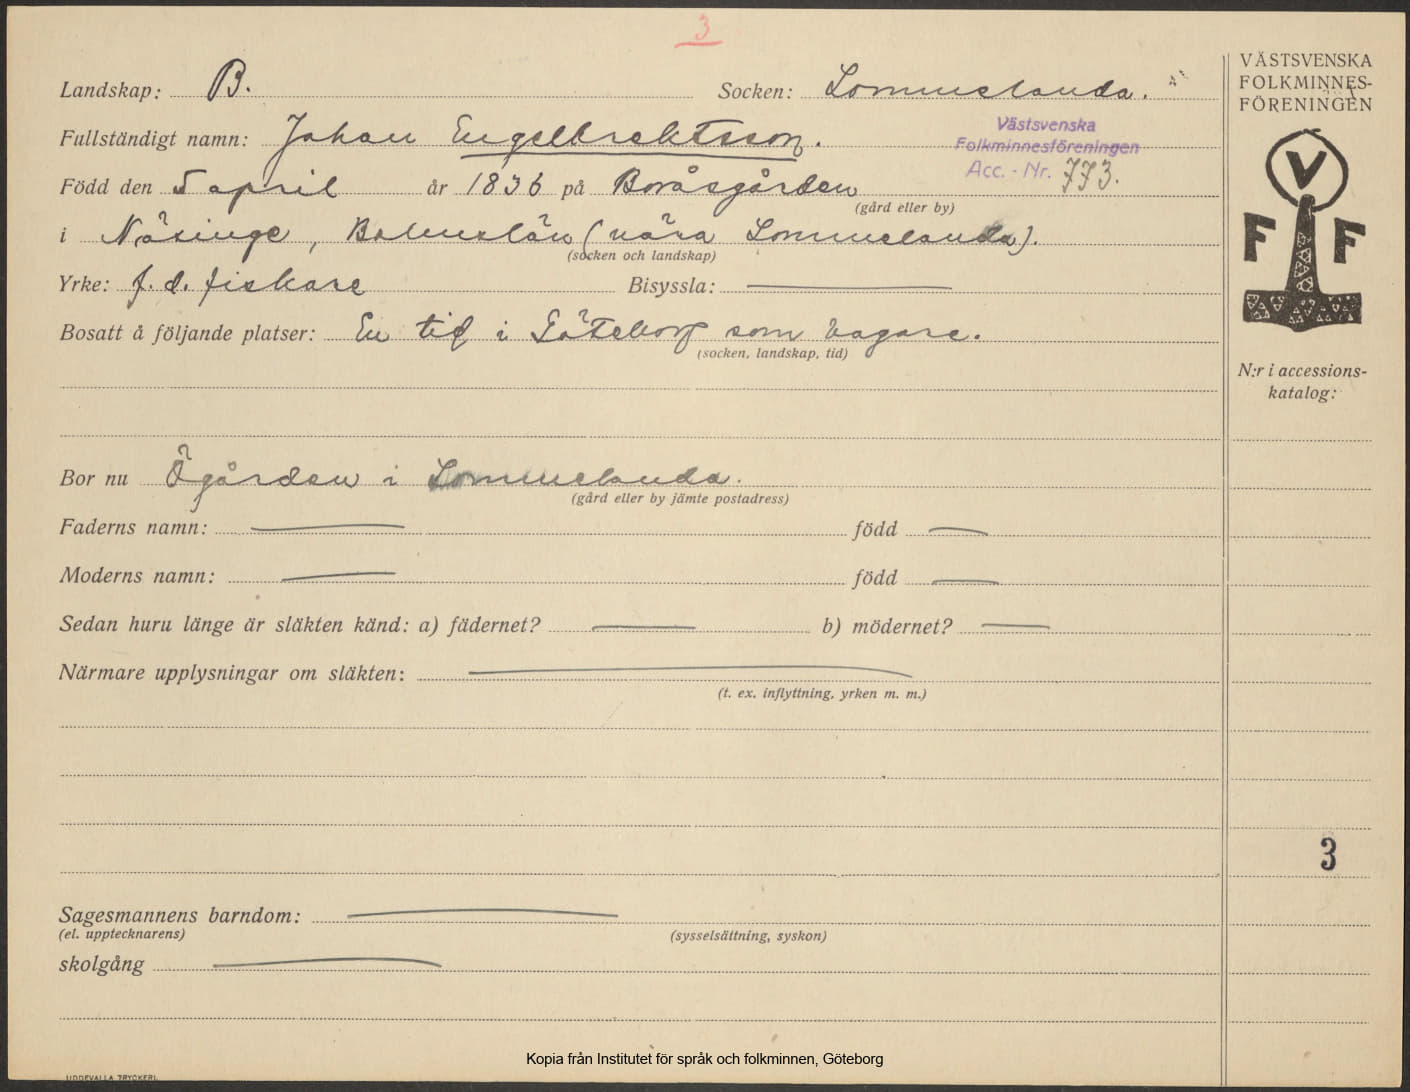 3
Landskap: B. Socken: Lommelanda.
VÄSTSVENSKA
FOLKMINNES-
FÖRENINGEN
Fullständigt namn: Johan Engelbrektsson.
Västsvenska
Folkminnesföreningen
Acc. - Nr. 773.
Född den 5 april år 1836 på Boråsgården
(gård eller by)
V
F F
i Näsinge, Bohuslän (nära Lommelanda).
(socken och landskap)
Yrke: f. d. fiskare Bisyssla:
Bosatt å följande platser: En tid i Göteborg som bagare.
(socken, landskap, tid)
N:r i accessions-
katalog:
Bor nu Ögården i Lommelanda.
(gård eller by jämte postadress)
Faderns namn: född
Moderns namn: född
Sedan huru länge är släkten känd: a) fädernet? b) mödernet?
Närmare upplysningar om släkten:
(t. ex. inflyttning, yrken m. m.)
3
Sagesmannens barndom:
(el. upptecknarens) (sysselsättning, syskon)
skolgång
Kopia från Institutet för språk och folkminnen, Göteborg
UDDEVALLA TRYCKERI.